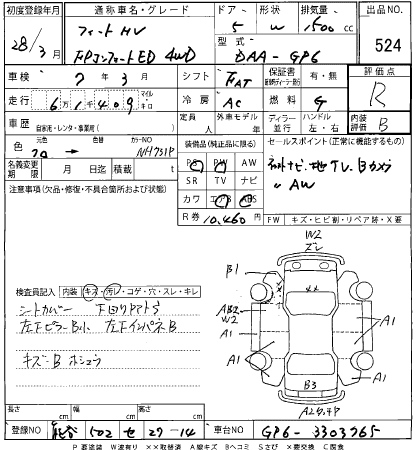 初度登録年月 通称車名・グレード ドア 形状 排気量 出品NO
28/3月 フィット HV 5 W 1500 cc 524
F.Pコンフォート ED 4WD 型式 DAA-GP6
車検 7年3月 シフト FAT 保証書 有・無 評価点
走行 6万1千409 マイル キロ 冷房 AC 燃料 G R
車歴 自家用・レンタ・事業用( ) 定員 人 外車モデル 年 ディーラー 並行 ハンドル 左・右 内装評価 B
色 元色 → カラーNO NH731P
装備品(純正品に限る) セールスポイント(正常に機能するもの)
名義変更期限 月 日迄 積載 t
PS PW AW
SR TV ナビ
カワ エアB ABS
R券 10,460 円
ナビ・地TV.Bカメラ
〃 AW
注意事項(欠品・修復・不具合箇所および状態)
FW キズ・ヒビ割・リペア跡・X要
W2
B1
AB2
W2
A1
A1
A1
A1
B3
検査員記入 内装 キズ・汚レ・コゲ・穴・スレ・キレ
シートカバー 下回りサビS
左下ピラーB小 左下インパネB
キズ・B ホシュウ
長さ cm 幅 cm 高さ cm
登録NO 502 せ 27-14 車台NO GP6-3303765
P 要塗装 W波有り ××取替済 A線キズ Bヘコミ Sさび ×要交換 C腐食